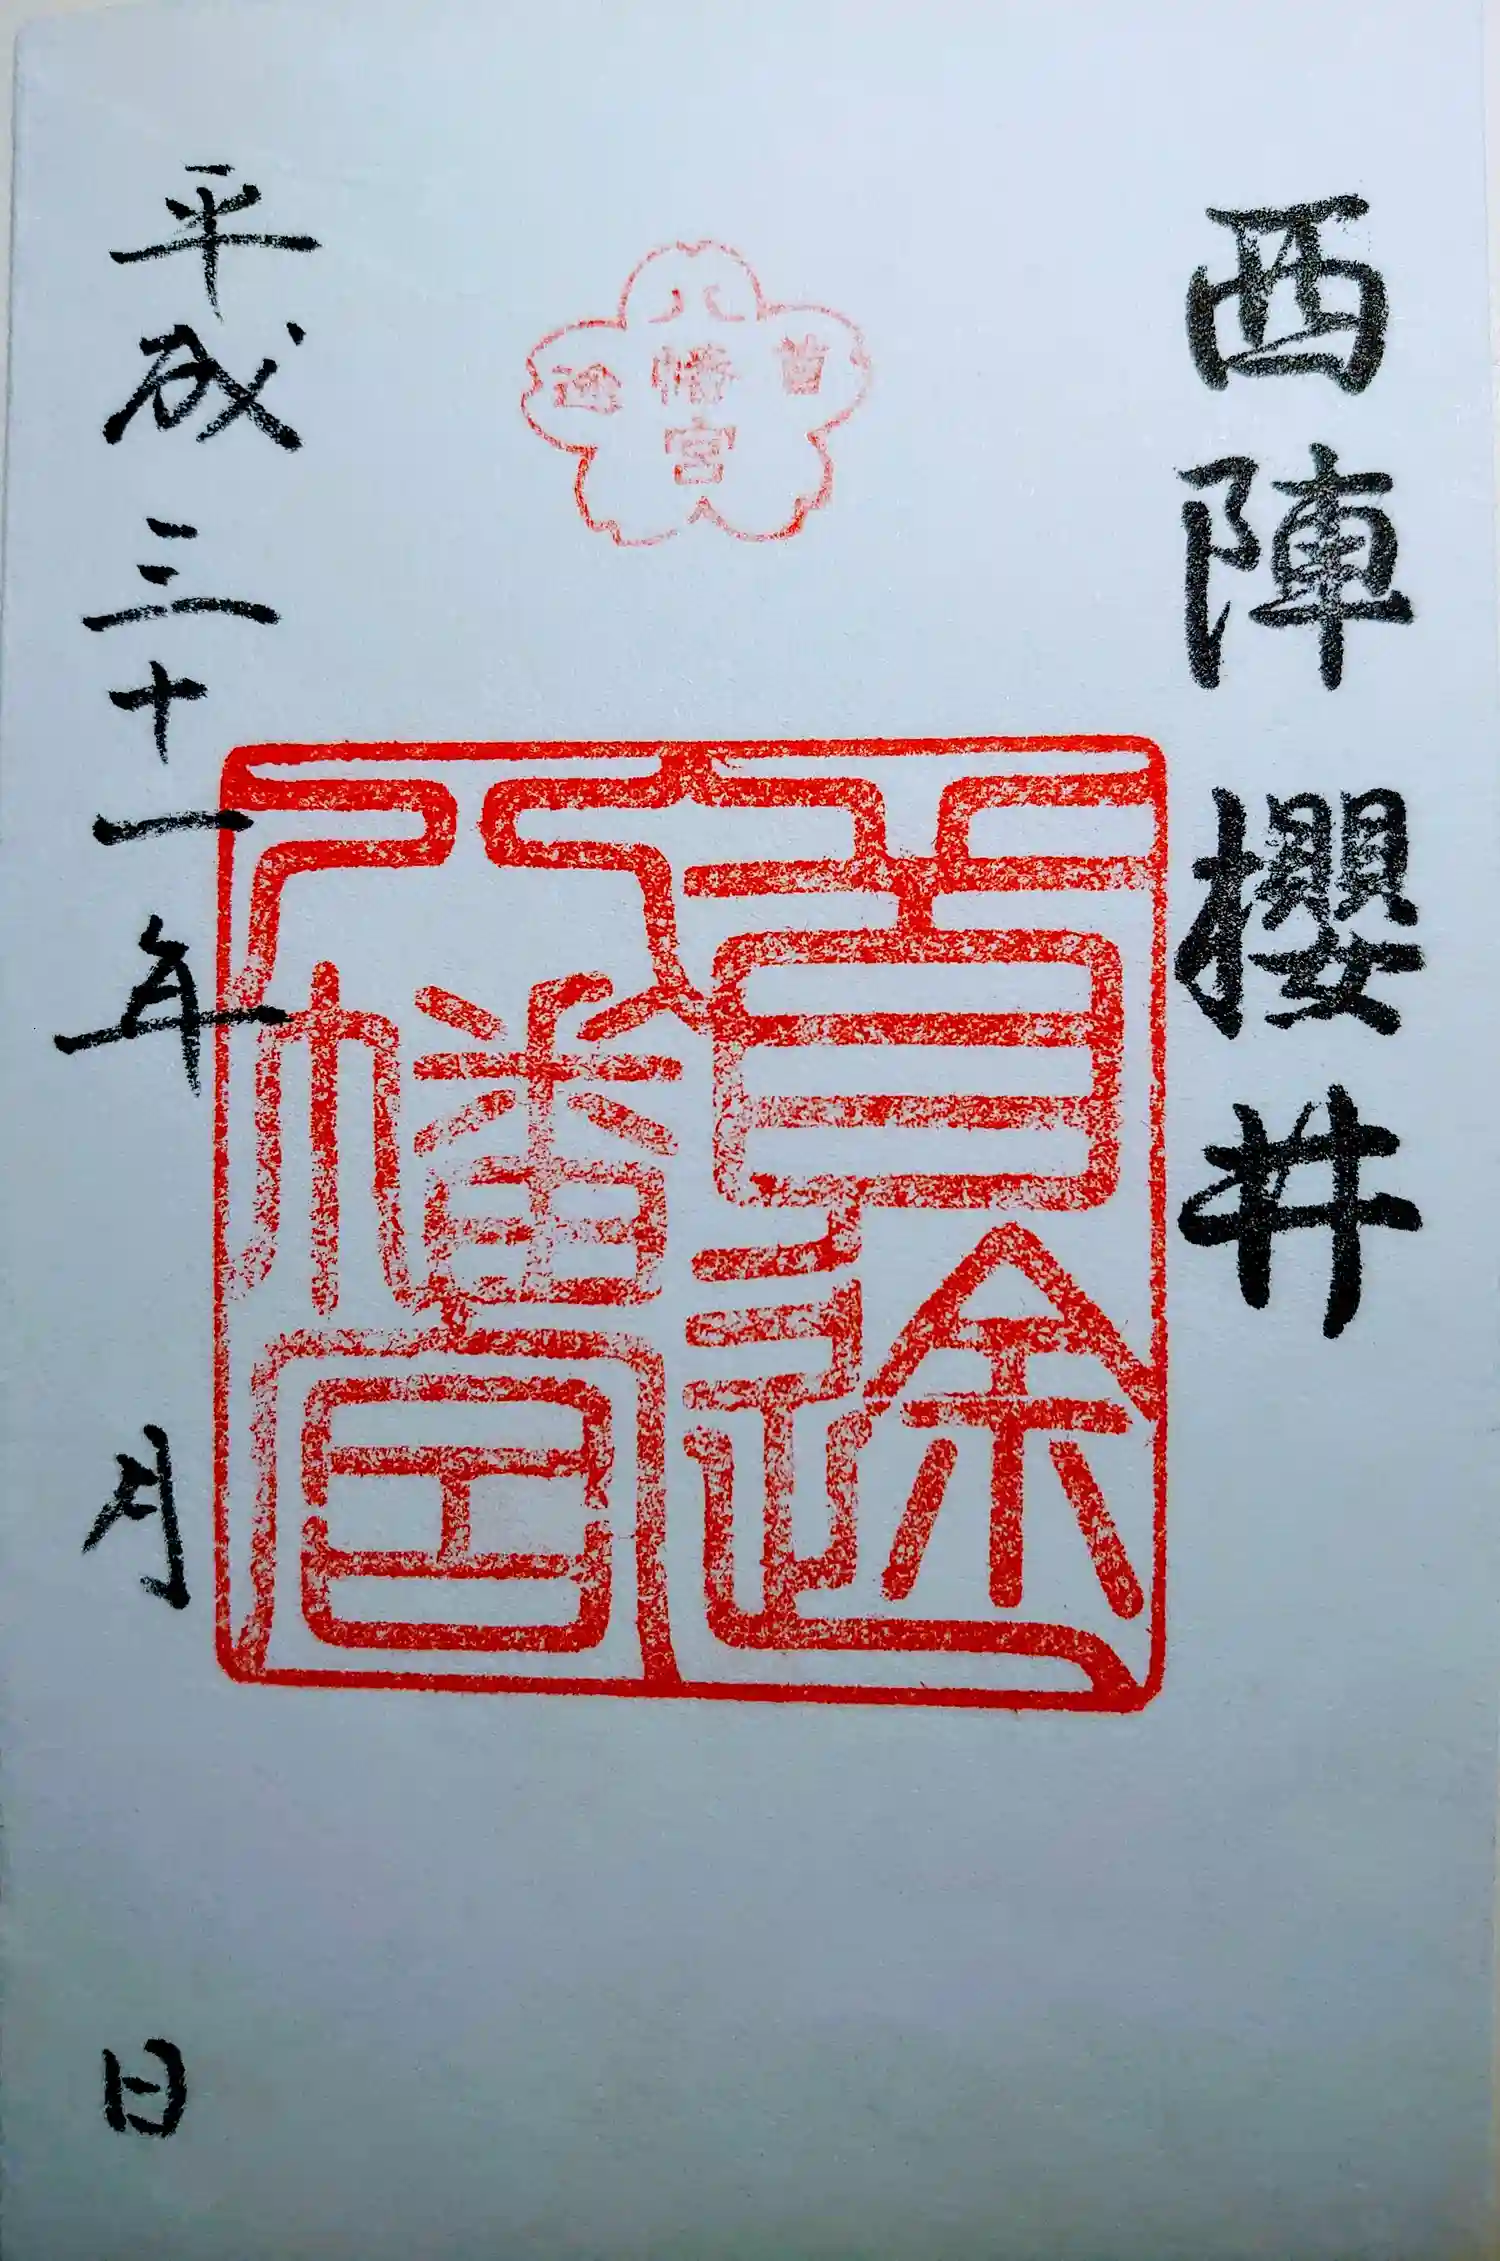 西陣櫻井
首途
八幡宮
首途
八幡宮
平成三十一年 月 日